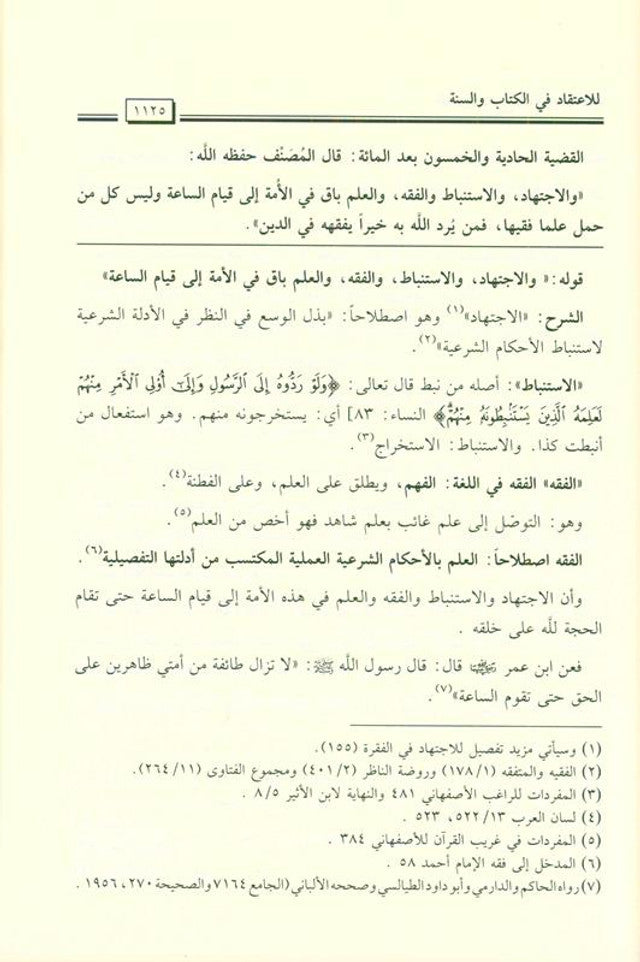 للاعتقاد في الكتاب والسنة
١١٢٥
القضية الحادية والخمسون بعد المائة: قال المُصَنّف حفظه اللَّه:
«والاجتهاد، والاستنباط والفقه، والعلم باق في الأُمة إلى قيام الساعة وليس كل من
حمل علما فقيها، فمن يُرد اللَّه به خيراً يفقهه في الدين».
قوله: « والاجتهاد، والاستنباط، والفقه، والعلم باق في الأمة إلى قيام الساعة»
الشرح: «الاجتهاد»(١) وهو اصطلاحاً: «بذل الوسع في النظر في الأدلة الشرعية
لاستنباط الأحكام الشرعية»(٢).
«الاستنباط»: أصله من نبط قال تعالى: ﴿وَلَوْ رَدُّوهُ إِلَى ٱلرَّسُولِ وَإِلَىٰٓ أُوْلِى ٱلْأَمْرِ مِنْهُمْ
لَعَلِمَهُ ٱلَّذِينَ يَسْتَنۢبِطُونَهُۥ مِنْهُمْ﴾ النساء: ٨٣] أي: يستخرجونه منهم. وهو استفعال من
أنبطت كذا. والاستنباط: الاستخراج(٣).
«الفقه» الفقه في اللغة: الفهم، ويطلق على العلم، وعلى الفطنة(٤).
وهو: التوصّل إلى علم غائب بعلم شاهد فهو أخص من العلم(٥).
الفقه اصطلاحاً: العلم بالأحكام الشرعية العملية المكتسب من أدلتها التفصيلية(٦).
وأن الاجتهاد والاستنباط والفقه والعلم في هذه الأمة إلى قيام الساعة حتى تقام
الحجة للَّه على خلقه .
فعن ابن عمر رضي الله عنهما قال: قال رسول اللَّه ﷺ: «لا تزال طائفة من أمتي ظاهرين على
الحق حتى تقوم الساعة»(٧).
(١) وسيأتي مزيد تفصيل للاجتهاد في الفقرة (١٥٥).
(٢) الفقيه والمتفقه (١/ ١٧٨) وروضة الناظر (٢/ ٤٠١) ومجموع الفتاوى (١١/ ٢٦٤).
(٣) المفردات للراغب الأصفهاني ٤٨١ والنهاية لابن الأثير ٥/ ٨ .
(٤) لسان العرب ١٣/ ٥٢٢، ٥٢٣ .
(٥) المفردات في غريب القرآن للأصفهاني ٣٨٤ .
(٦) المدخل إلى فقه الإمام أحمد ٥٨ .
(٧) رواه الحاكم والدارمي وأبو داود الطيالسي وصححه الألباني (الجامع ٧١٦٤ والصحيحة ٢٧٠، ١٩٥٦ .